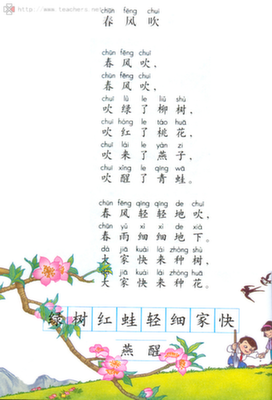 http://www.teachers.net
chūn fēng chuī
春风吹
chūn fēng chuī
春风吹，
chūn fēng chuī
春风吹，
chuī lǜ le liǔ shù
吹绿了柳树，
chuī hóng le táo huā
吹红了桃花，
chuī lái le yàn zi
吹来了燕子，
chuī xǐng le qīng wā
吹醒了青蛙。
chūn fēng qīng qīng de chuī
春风轻轻地吹，
chūn yǔ xì xì de xià
春雨细细地下。
dà jiā kuài lái zhòng shù
大家快来种树，
dà jiā kuài lái zhòng huā
大家快来种花。
绿树红蛙轻细家快
燕醒